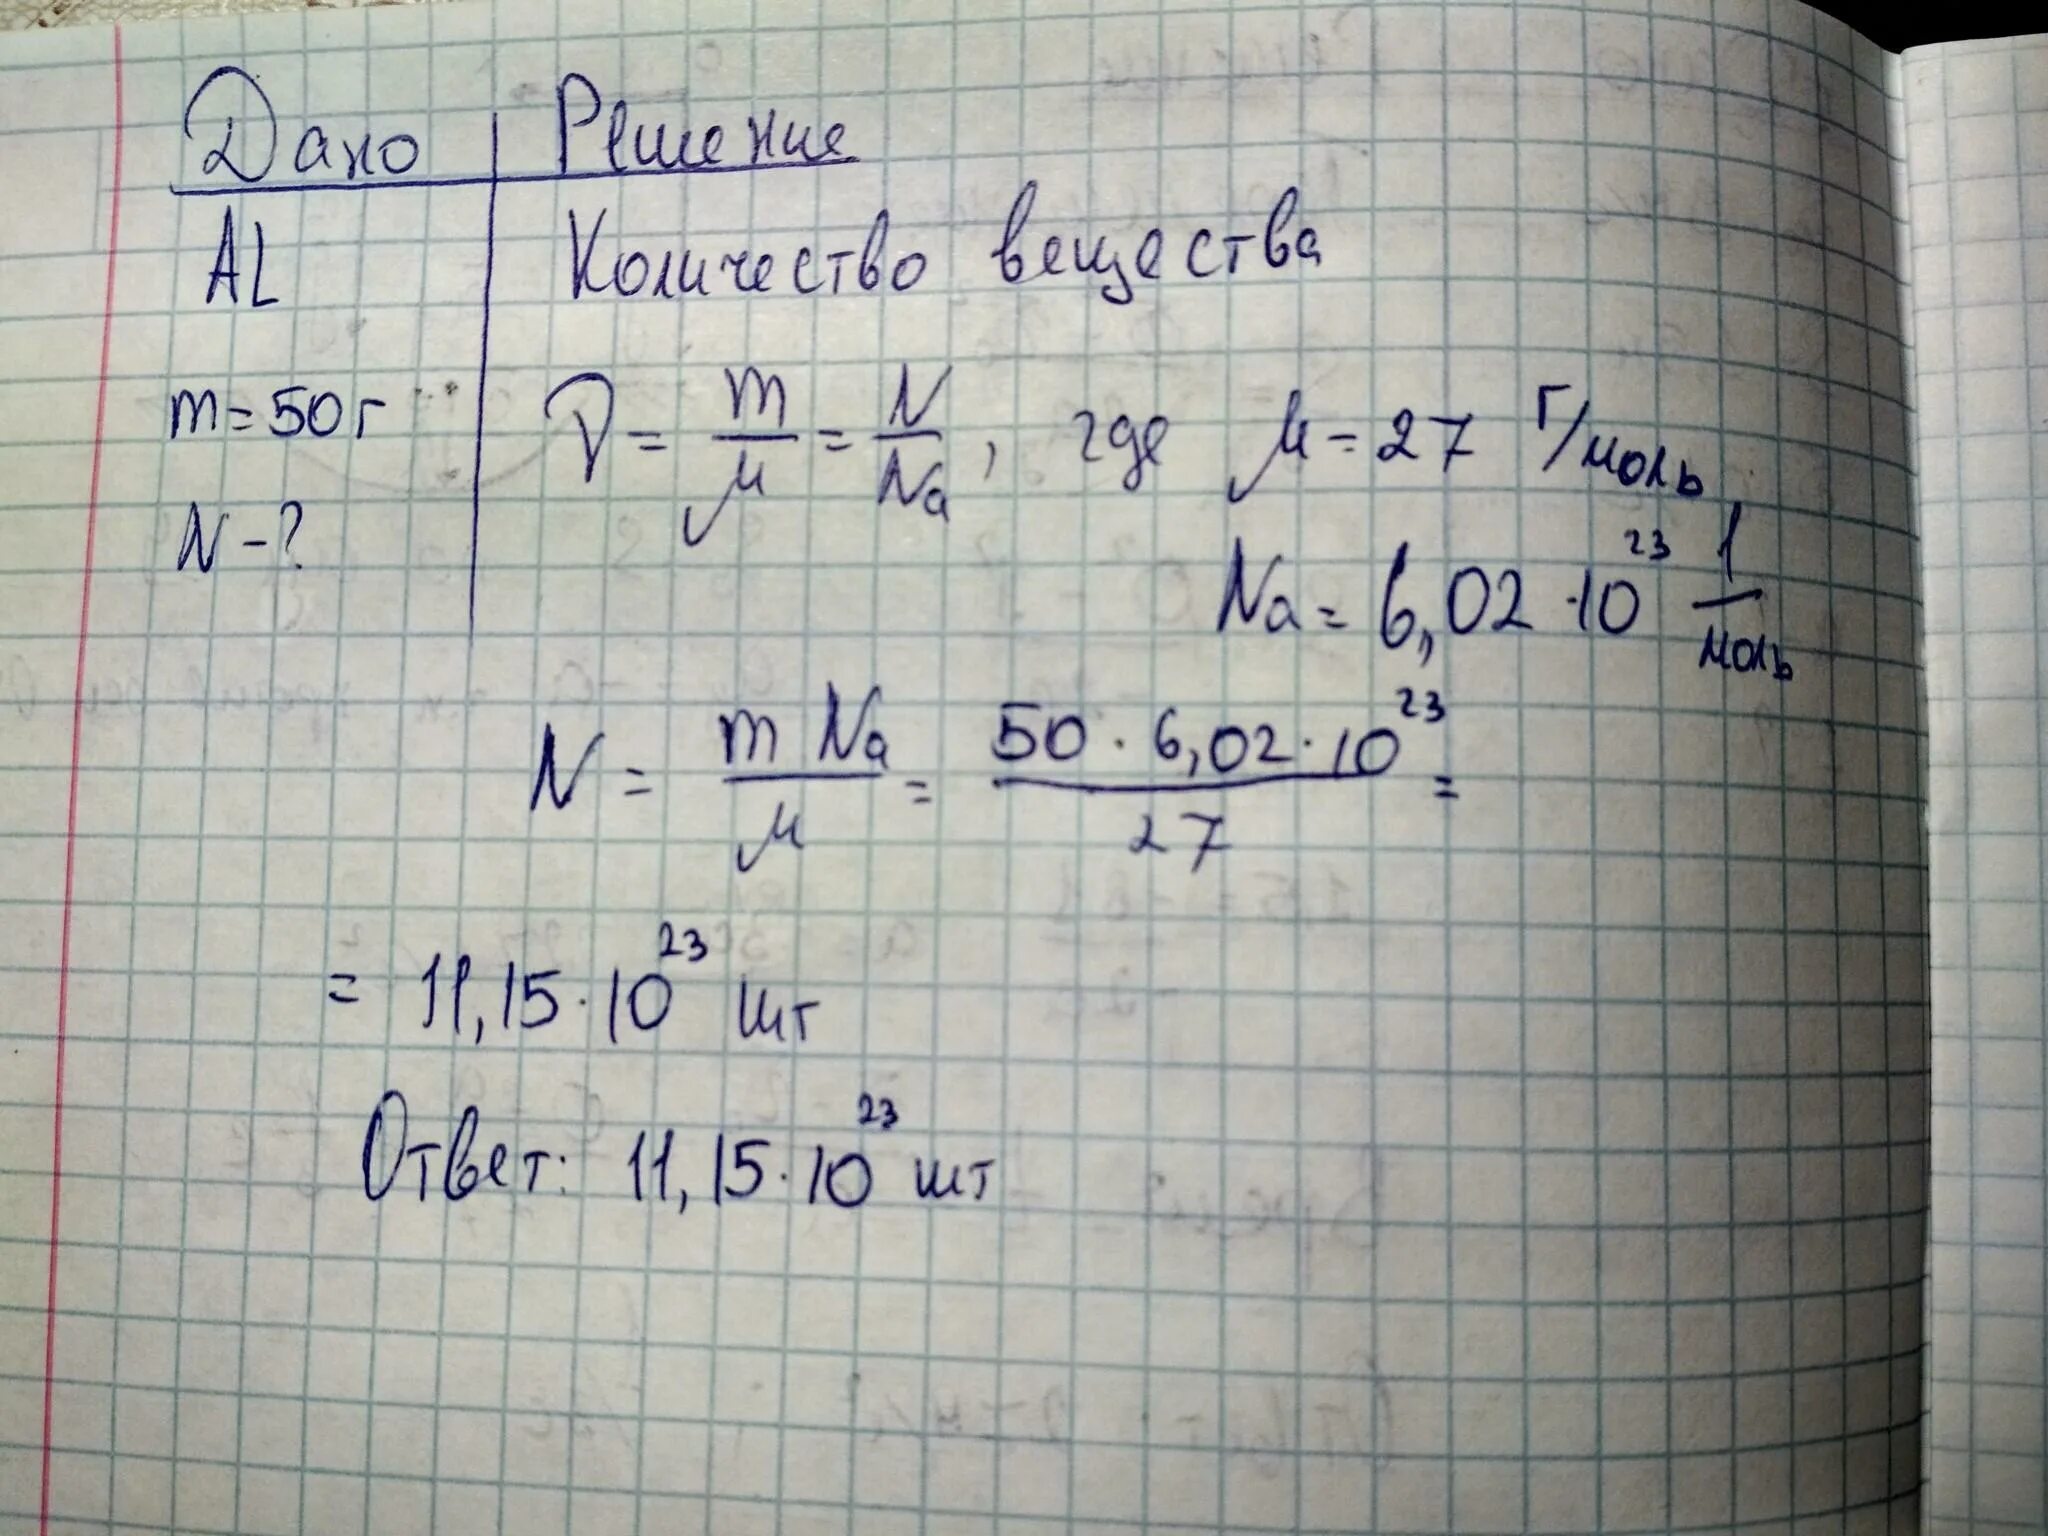 Дано | Решение
AL
Количество вещества
m=50г
ν = m/μ = N/Na, где μ = 27 г/моль
N-?
Na = 6,02·10²³ 1/моль
N = m Na/μ = 50·6,02·10²³/27 =
= 11,15·10²³ шт
Ответ: 11,15·10²³ шт